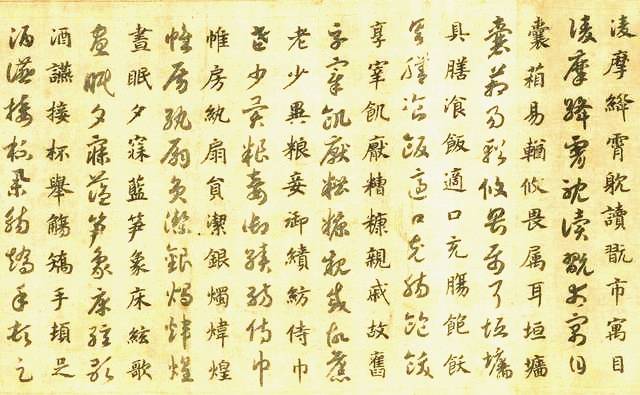 凌摩絳霄耽讀翫市寓目
凌摩絳霄耽讀翫市寓目
囊箱易輶攸畏属耳垣墻
囊箱易輶攸畏属耳垣墻
具膳飡飯適口充膓飽飫
具膳飡飯適口充膓飽飫
享宰飢厭糟糠親戚故舊
享宰飢厭糟糠親戚故舊
老少異粮妾御績紡侍巾
老少異粮妾御績紡侍巾
帷房紈扇員潔銀燭煒煌
帷房紈扇員潔銀燭煒煌
晝眠夕寐藍笋象床絃歌
晝眠夕寐藍笋象床絃歌
酒讌接杯舉觴矯手頓足
酒讌接杯舉觴矯手頓足